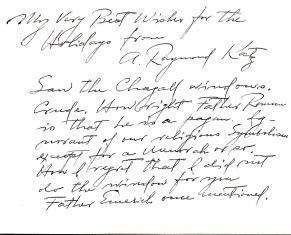 My Very Best Wishes for the
Holidays from
A. Raymond Katz
Saw the Chagall windows.
Crude. How right Father Roman
is that he is a pagan. Ig-
norant of our religious symbolism
except for a menorah or so.
How I regret that I did not
do the window for you
Father Emeric once mentioned.